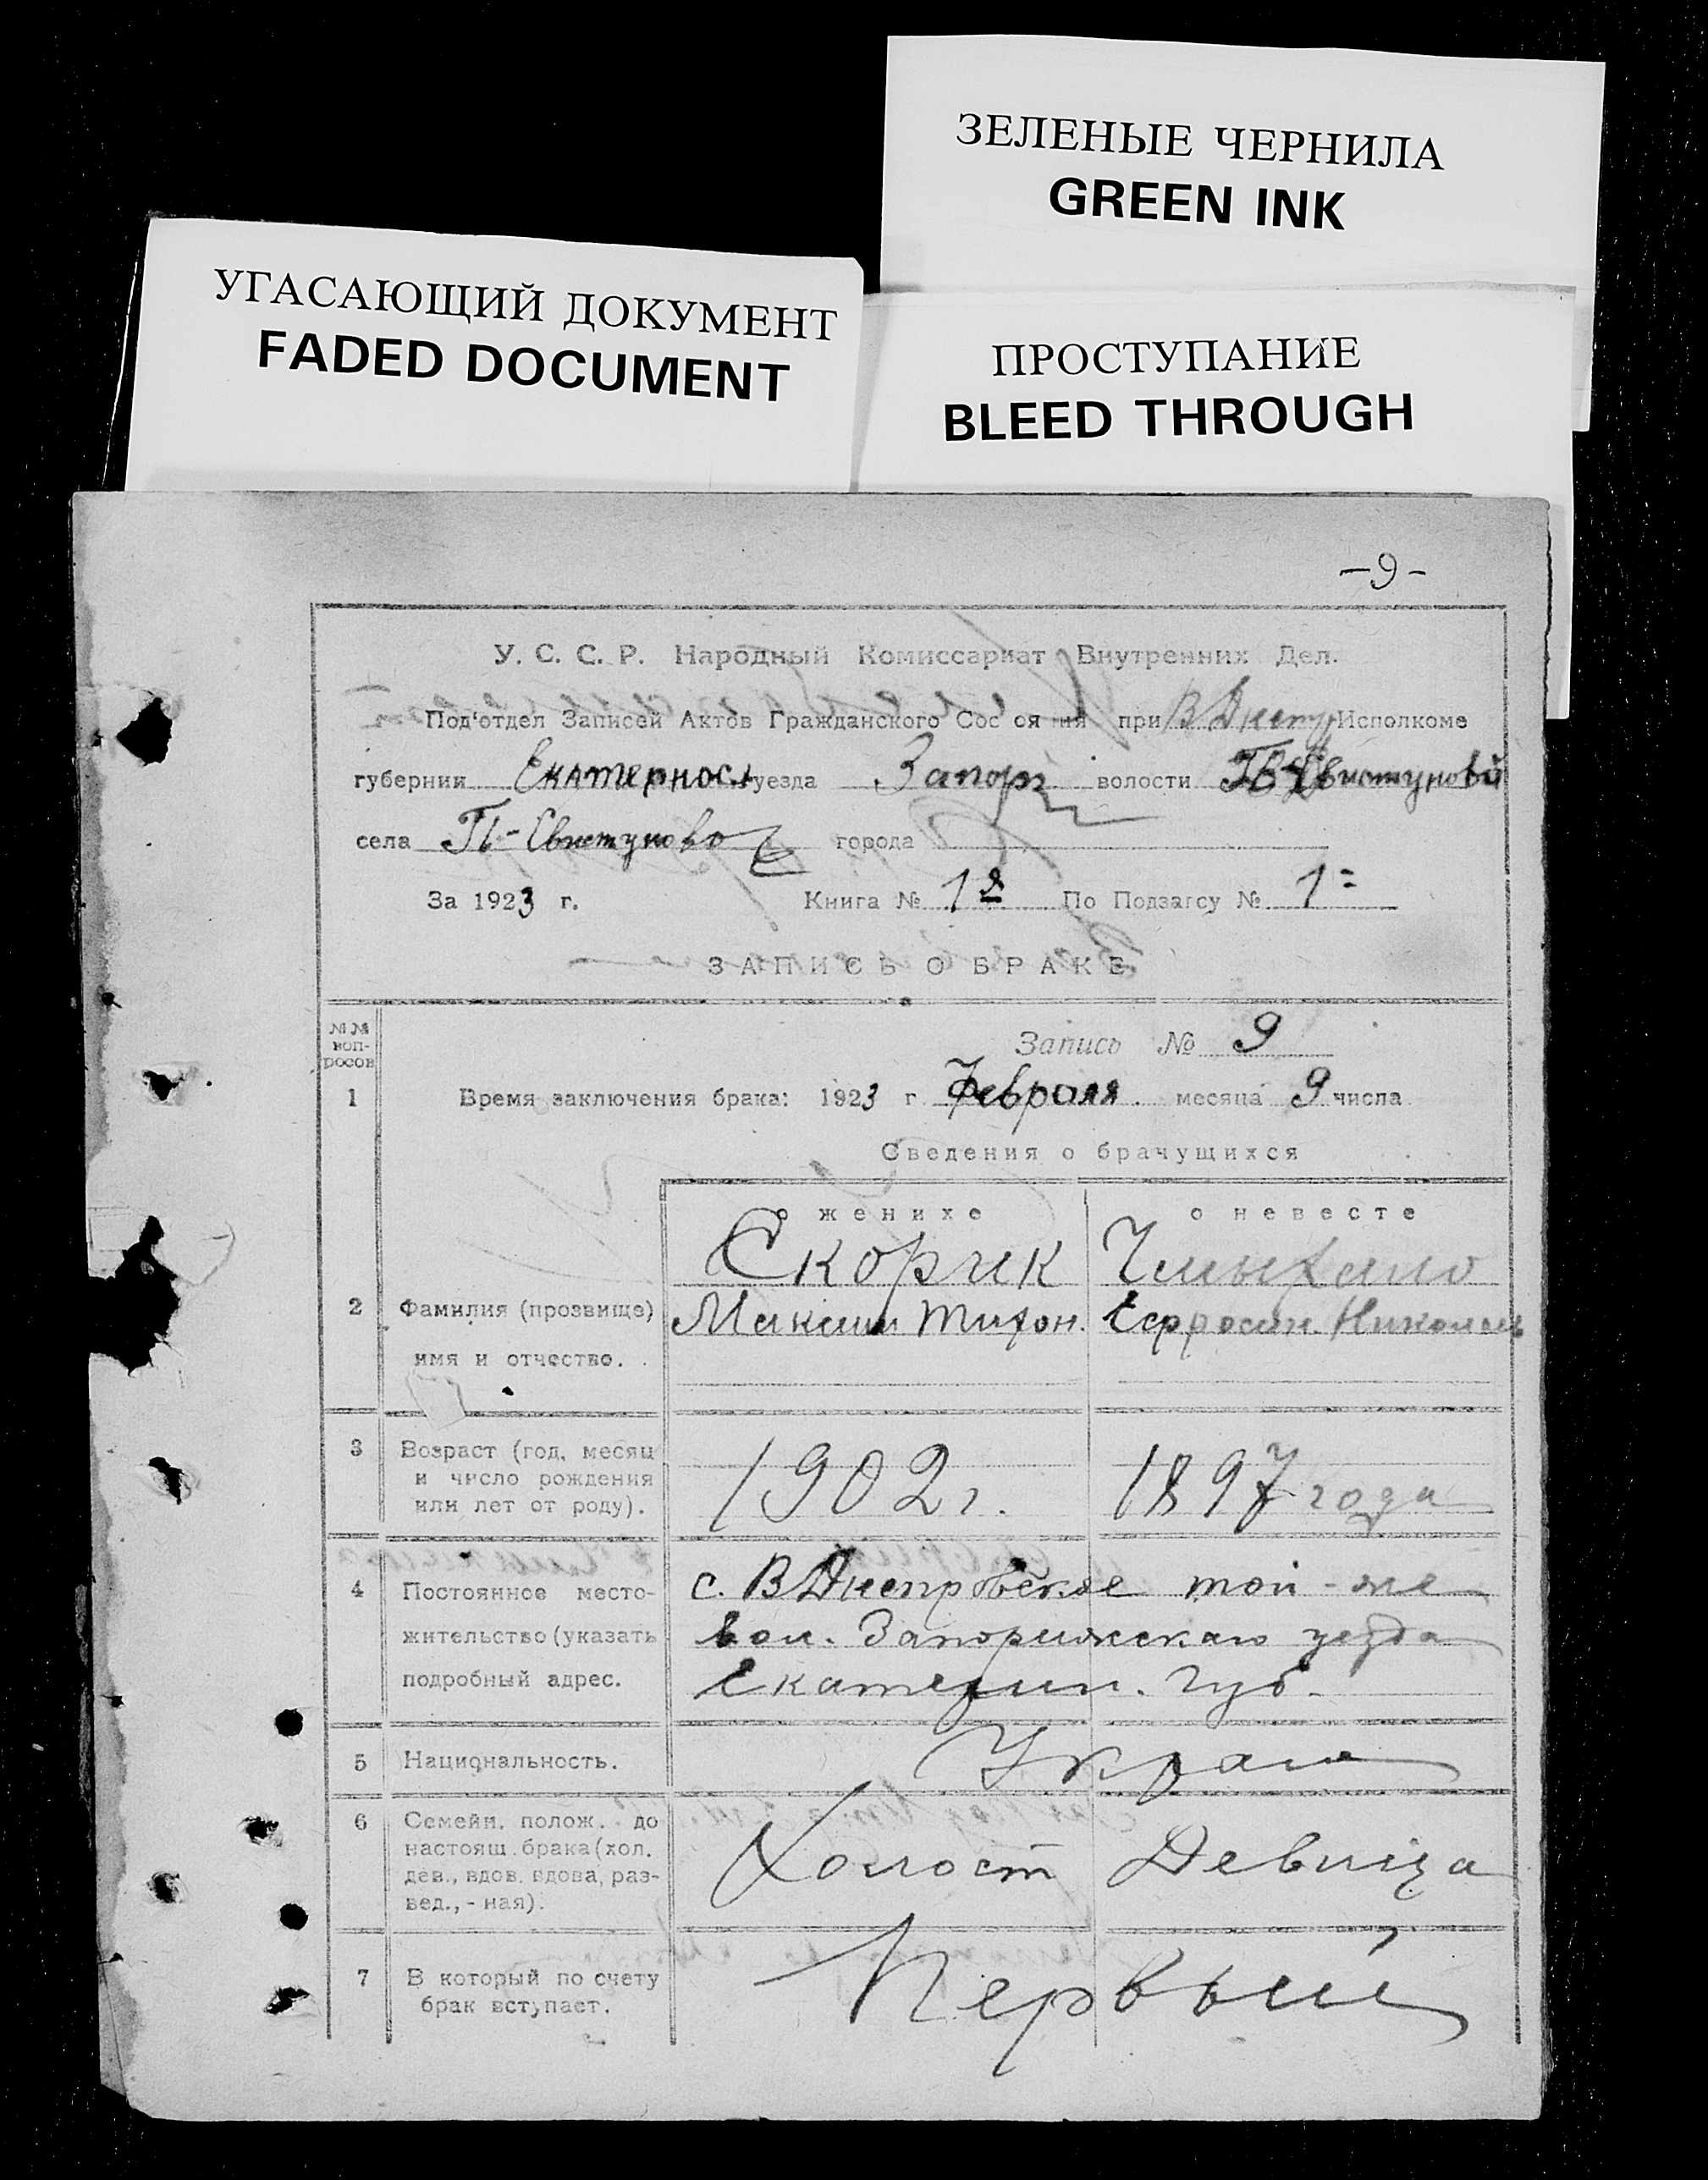 ЗЕЛЕНЫЕ ЧЕРНИЛА
GREEN INK
УГАСАЮЩИЙ ДОКУМЕНТ
FADED DOCUMENT
ПРОСТУПАНИЕ
BLEED THROUGH
-9-
У. С. С. Р. Народный Комиссариат Внутренних Дел.
Под'отдел Записей Актов Гражданского Сос оя ния при В Днепр Исполкоме
губернии Екатеринос уезда Запор волости
села П-Свистуново города
За 1923 г. Книга № 1я По Подзагсу № 1=
ЗАПИСЬ О БРАКЕ
№№ воп-росов
Запись № 9
1 Время заключения брака: 1923 г Февраля месяца 9 числа
Сведения о брачущихся
о женихе о невесте
Скорик
2 Фамилия (прозвище) Максим Тихон. Ефросин. Николаев
имя и отчество.
3 Возраст (год, месяц
и число рождения 1902 г. 1897 года
или лет от роду).
4 Постоянное место- с. ВДнепровское той-же
жительство (указать вол. Запорижскаго уезда
подробный адрес. Екатерин. губ.
5 Национальность. Украин
6 Семейн. полож. до
настоящ. брака (хол. Холост Девица
дев., вдов. вдова, раз-
вед., - ная).
7 В который по счету Первый
брак вступает.